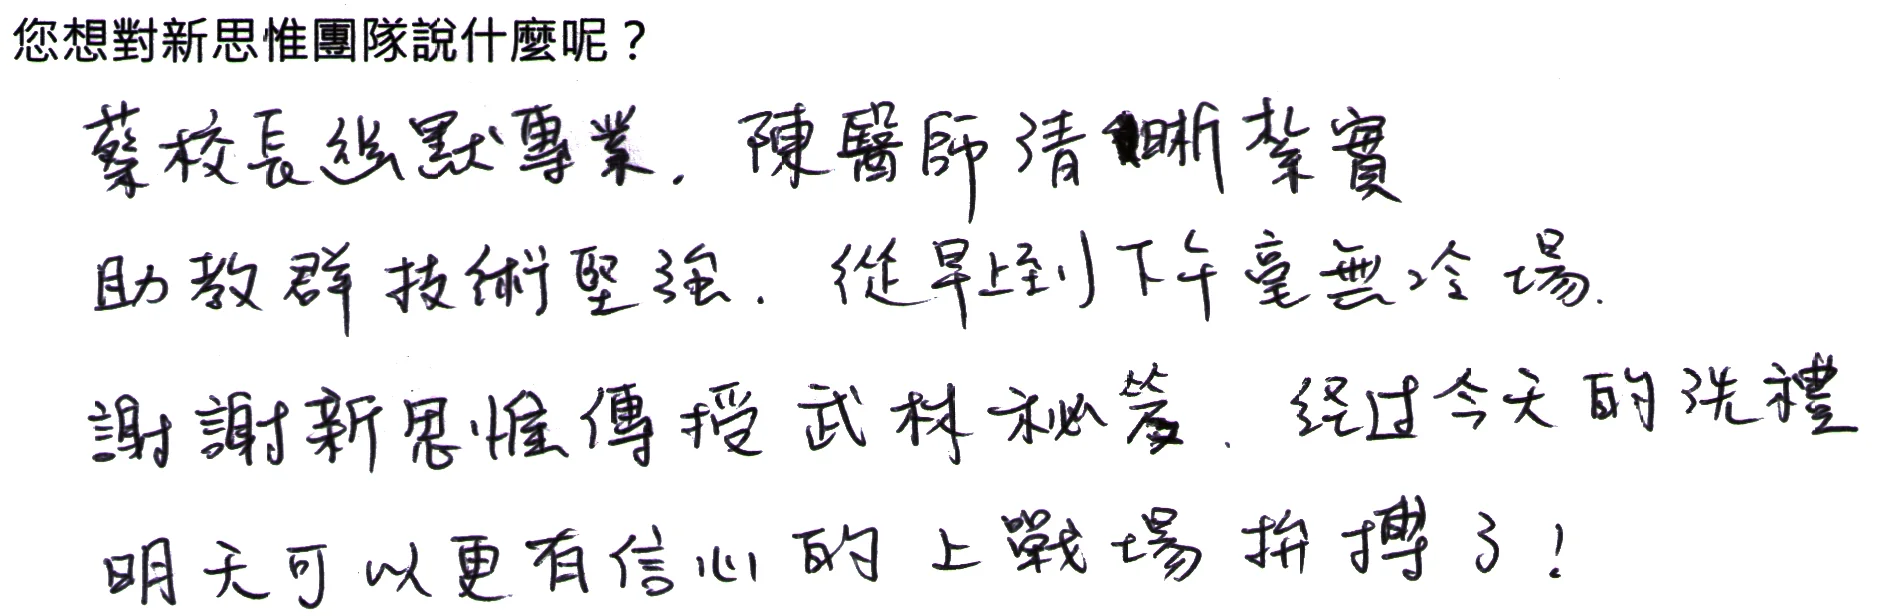 您想對新思惟團隊說什麼呢？
蔡校長幽默專業. 陳醫師清晰紮實
助教群技術堅強. 從早上到下午毫無冷場.
謝謝新思惟傳授武林祕笈. 经过今天的洗禮
明天可以更有信心的上戰場拚搏了!